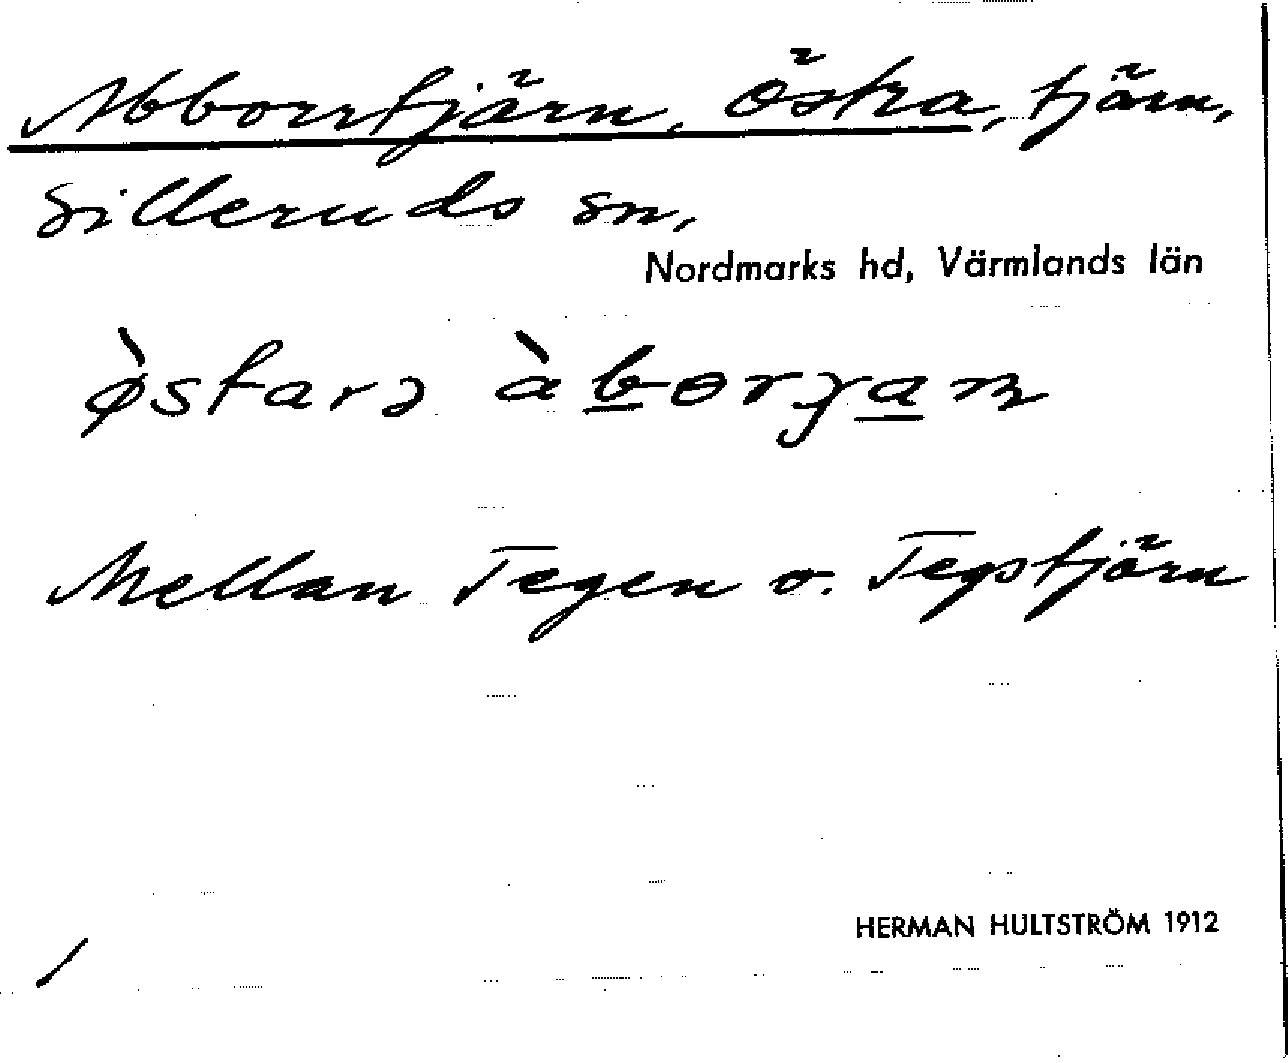 Abborrtjärn, Östra, tjärn,
Silleruds sn,
Nordmarks hd, Värmlands län
Mellan Tegen o. Tegstjärn
HERMAN HULTSTRÖM 1912